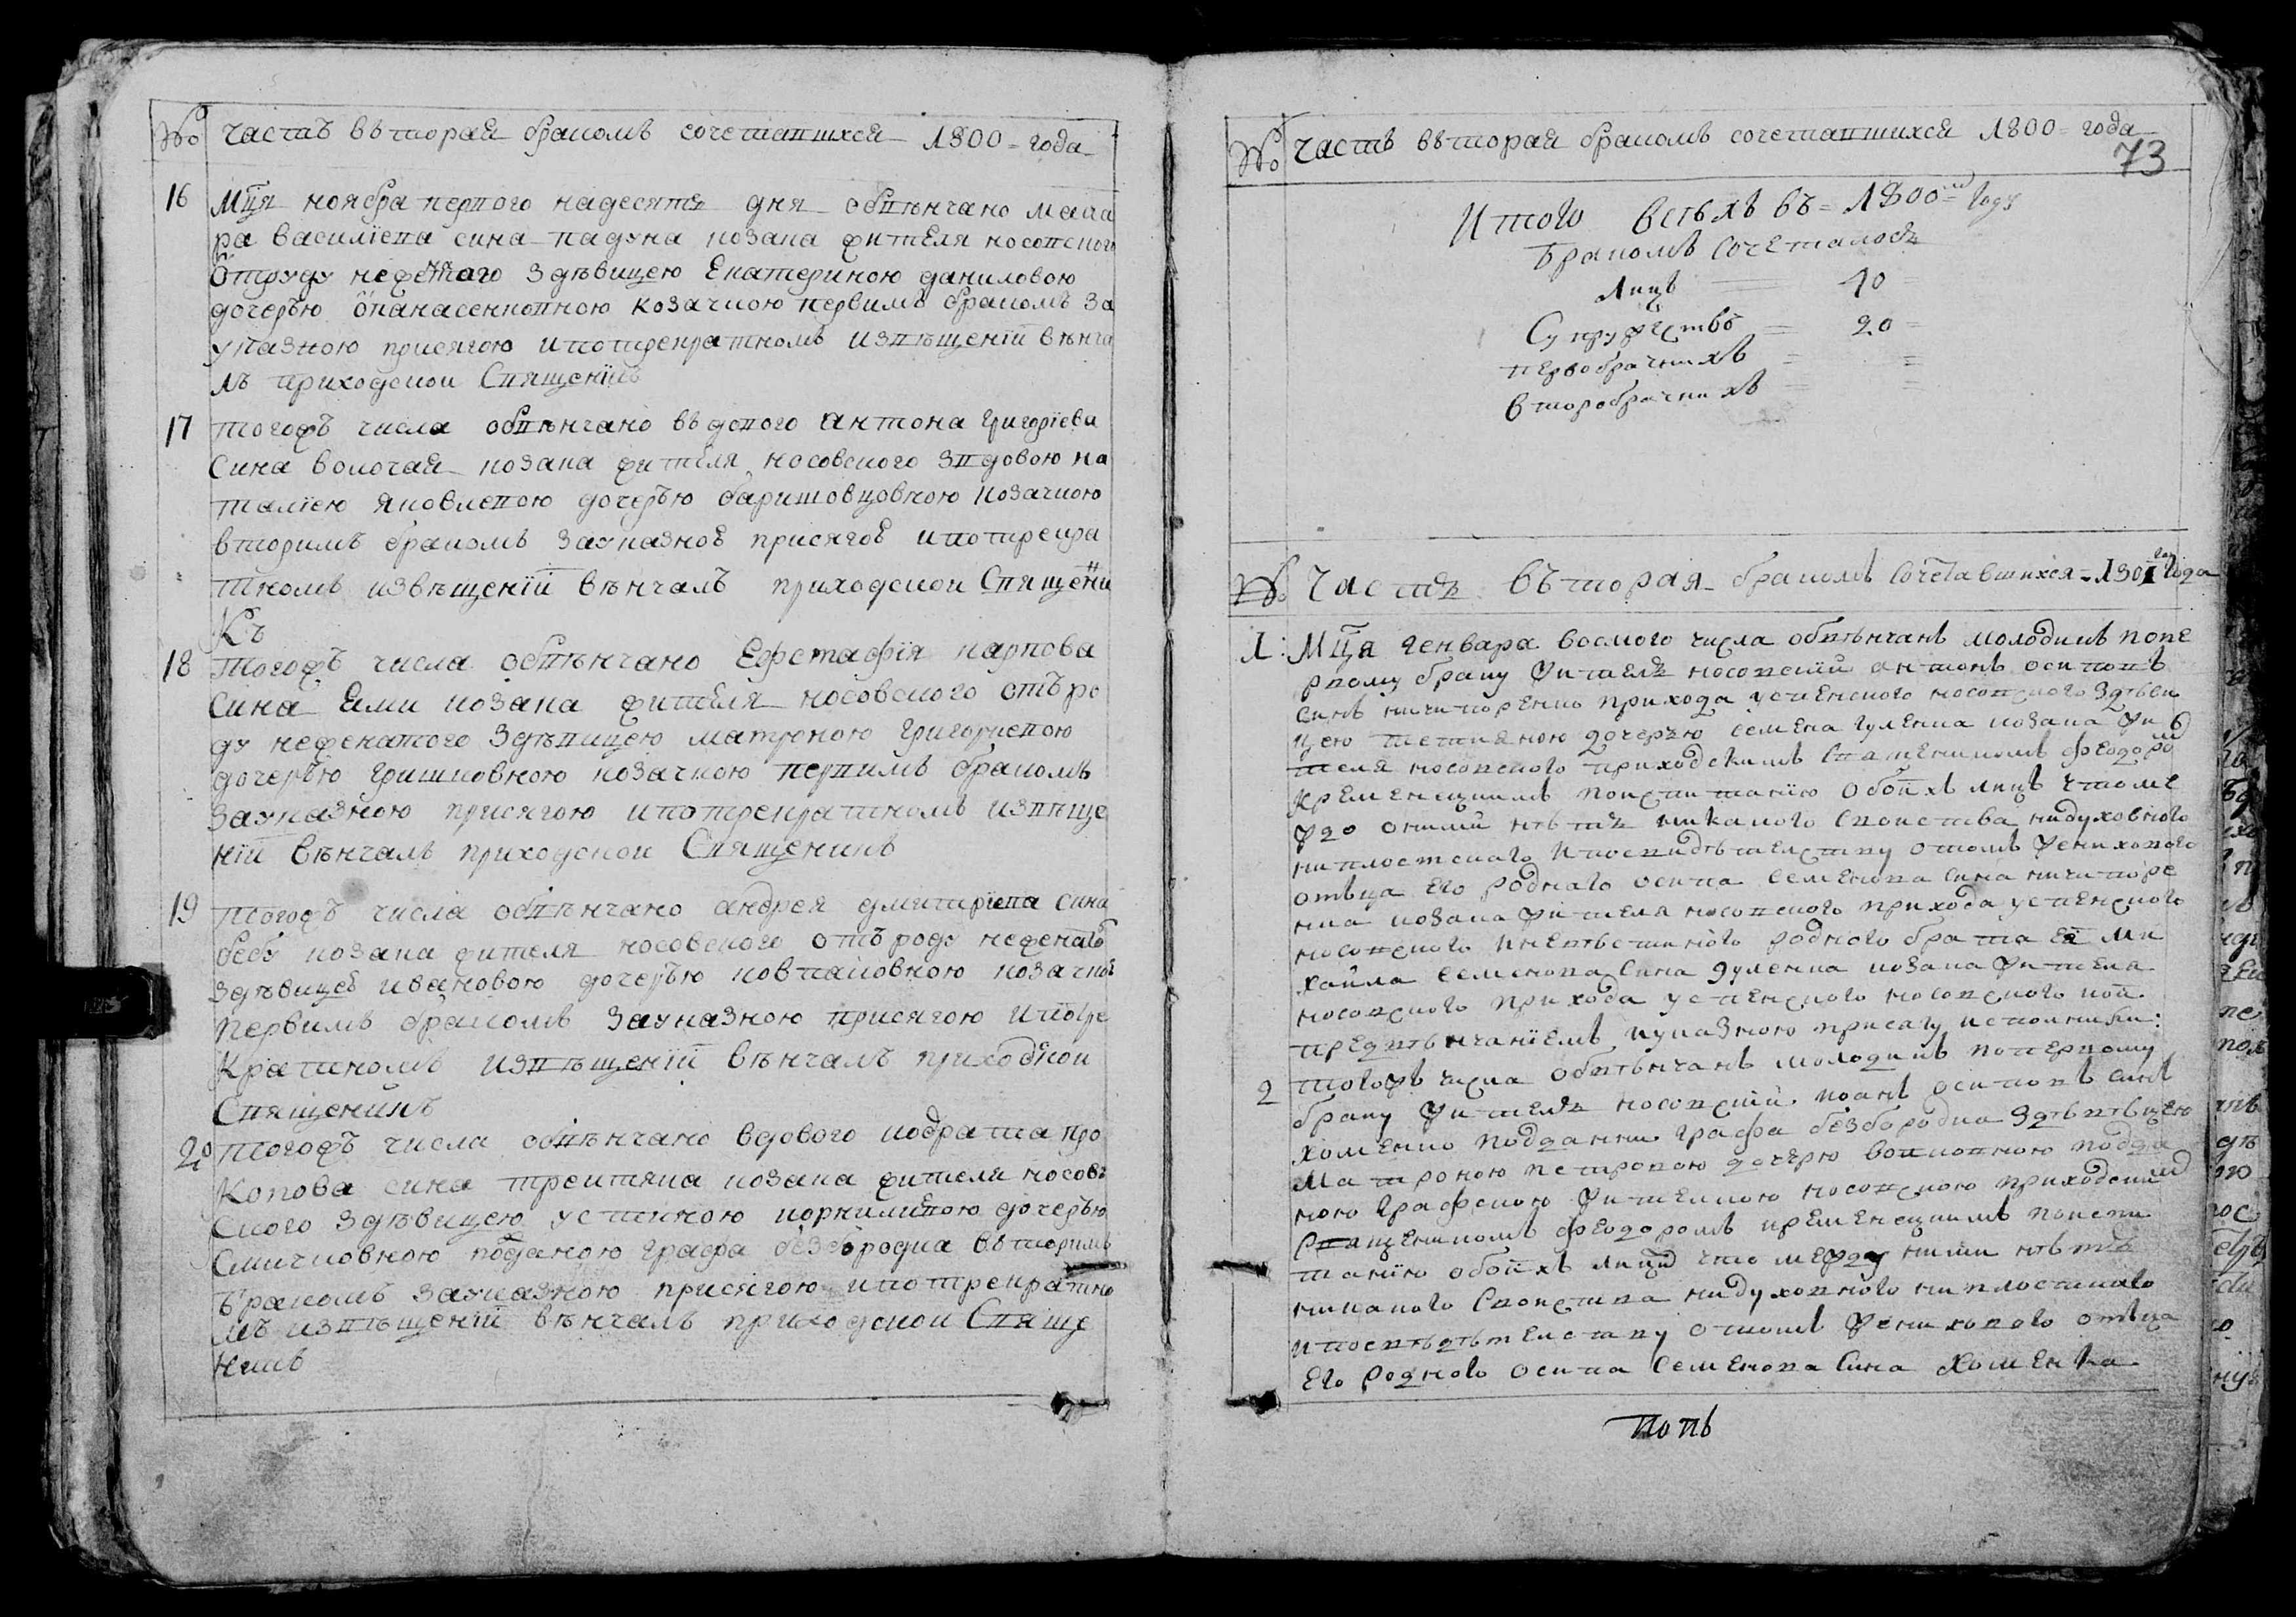 № Часть въторая бракомъ сочетавшихся 1800 = года
16 Мця ноября первого надесять дня обвѣнчано мака
ра василїева сина падуна козака жителя носовского
отроду неженатого здѣвицею Екатериною даниловою
дочерью опанасенковною козачкою первимъ бракомъ за
указною присягою ипотрекратномъ извѣщенїй вѣнча
лъ приходской Священикъ
17 тогожъ числа обвѣнчано въдового антона григорїева
Сина волочая козака жителя носовского звдовою на
талїею яковлевою дочерью баришовцовною козачкою
вторимъ бракомъ зауказноѣ присягоѣ ипотрекра
тномъ извѣщенїй вѣнчалъ приходской Священи
Къ
18 тогожъ числа обвѣнчано Ефстафїя карпова
Сина козака жителя носовского отъро
ду неженатого здѣвицею матроною григориевою
дочерью гришковною козачкою первимъ бракомъ
зауказною присягою ипотрекратномъ извѣще
нїй вѣнчалъ приходской Священикъ
19 тогожъ числа обвѣнчано андрея дмитрїева сина
козака жителя носовского отъроду неженато
здѣвицеѣ ивановою дочерью ковпаковною козачкоѣ
первимъ бракомъ зауказною присягою ипотре
Кратномъ извѣщенїй вѣнчалъ приходской
Священикъ
20 тогожъ числа обвѣнчано вдового кодрата про
Копова сина козака жителя носовъ
Ского здѣвицею устиною корнилїевою дочерью
Смичковною поданою графа безбородка въторимъ
ъракомъ зауказною присягою ипотрекратно
мъ извѣщенїй вѣнчалъ приходской Свяще
никъ
№ Часть въторая бракомъ сочетавшихся 1800 = года
73
Итого всѣхъ въ = 1800 = году
бракомъ Сочеталось
Лицъ 40
Супружествъ = 20 =
первобрачнихъ = =
второбрачнихъ = =
№ Часть въторая бракомъ Сочетавшихся = 1801 года
1: Мця генвара восмого числа обвѣнчанъ молодикъ попе
рвому браку житель носовский антонъ осиповъ
синъ ничипоренко прихода успенского носовского здѣви
цею дочерью семена гуленка козака жи
теля носовского приходскимъ Священикомъ феодоро
Кременецкимъ поиспитанию обойхъ лицъ чтоме
ждо оними нѣтъ никакого Своиства нидуховного
ниплотского ипосвидѣтелству отомъ женихового
отъца Его родного осипа семенова сина ничипоре
нка козака жителя носовского прихода успенского
носовского иневѣстиного родного брата Ея ми
хайла семенова сина гуленка козака жителя
носовского прихода успенского носовского кой
предвѣнчанїемъ иуказною присягу исполнили:
2 тогожъ числа обвѣнчанъ молодикъ поперъвому
браку житель носовский иоанъ осиповъ синъ
хоменко подданки графа безбородка здѣвицею
Матроною петровою дочерю вовковною подда
ною графскою жителкою носовскою приходски
Священикомъ феодоромъ кременецкимъ поиспи
танию обойхъ лицъ что между ними нѣтъ
никакого Своиства нидуховного ниплотского
ипосвѣдѣтелству отомъ женихового отъца
Его родного осипа семенова Сина Хоменка